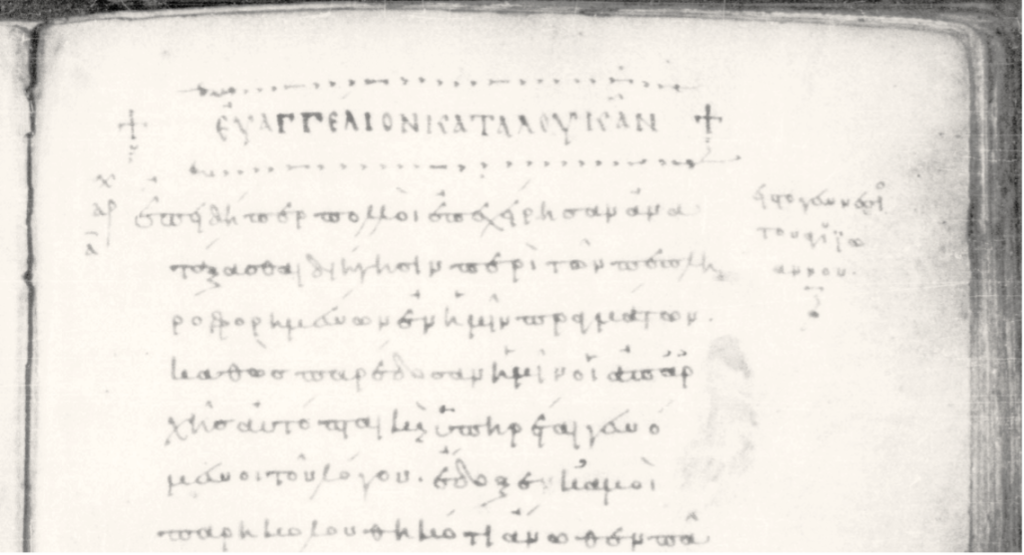 ΕΥΑΓΓΕΛΙΟΝ ΚΑΤΑ ΛΟΥΚΑΝ
ἐπειδήπερ πολλοὶ ἐπεχείρησαν ἀνα
τάξασθαι διήγησιν περὶ τῶν πεπλη
ροφορημένων ἐν ἡμῖν πραγμάτων.
καθὼς παρέδοσαν ἡμῖν οἱ ἀπαρ
χῆς αὐτόπται καὶ ὑπηρέται γενό
μενοι τοῦ λόγου. ἔδοξεν κἀμοὶ
παρηκολουθηκότι ἄνωθεν πᾶ
τοῦ ἁγίου
ἰωάννου